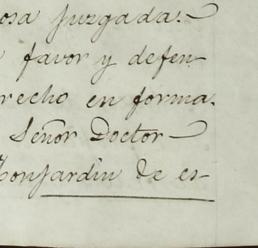 osa juzgada.-
favor y defen-
recho en forma.
Señor Doctor-
Monjardin de es-